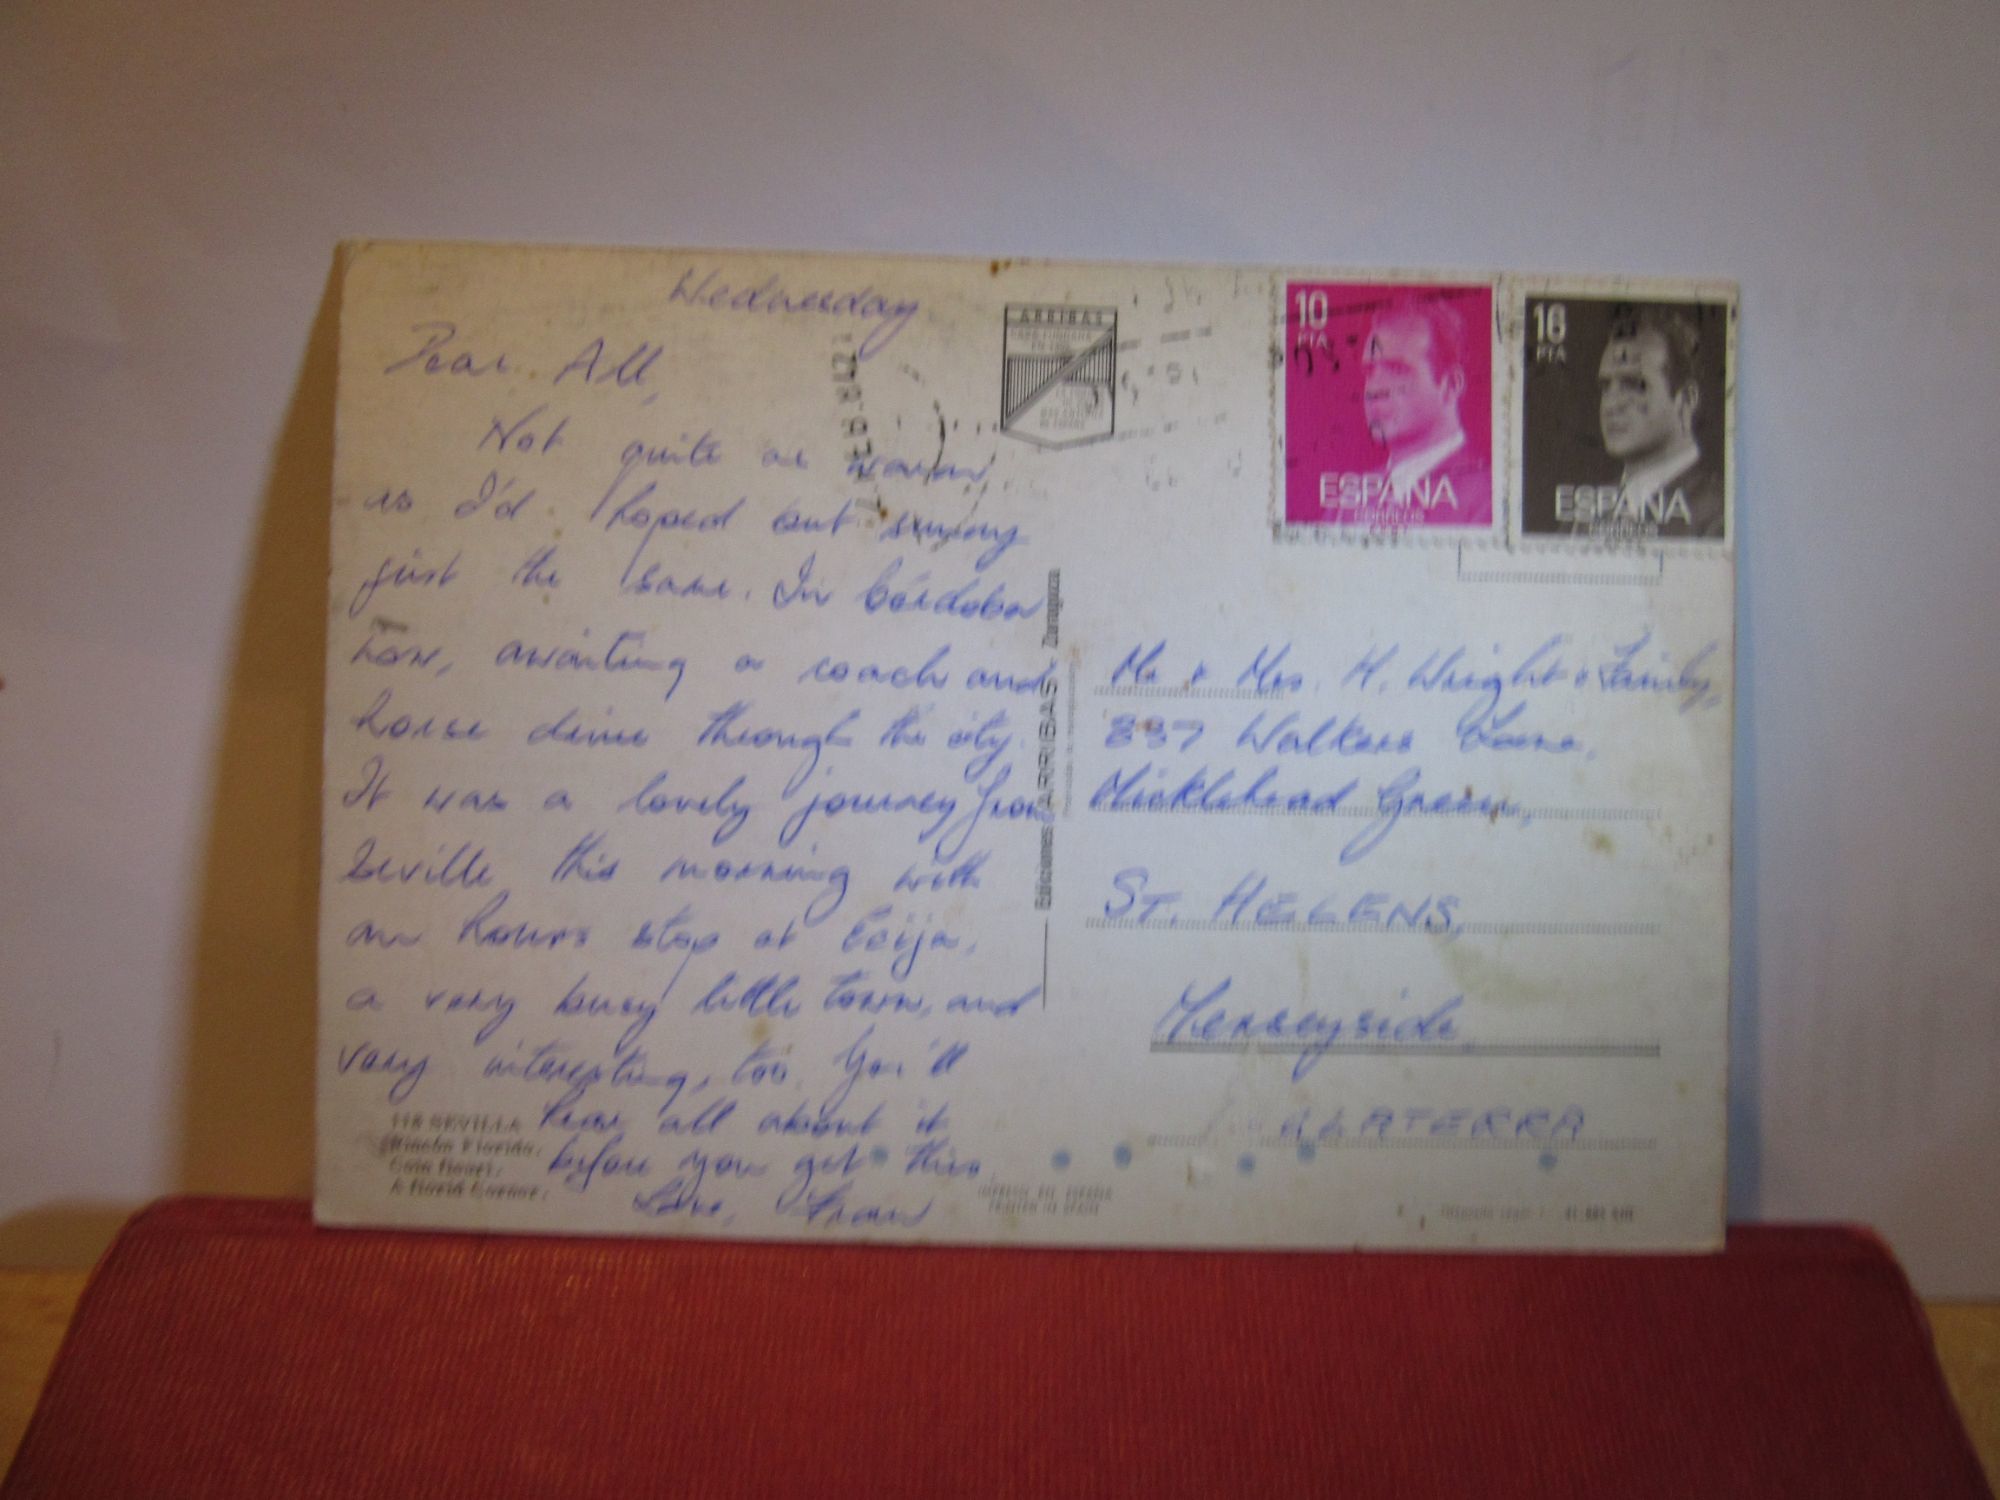 Wednesday
Dear All,
Not quite as warm
as I'd hoped but sunny
just the same. In Córdoba
now, awaiting a coach and
horse drive through the city.
It was a lovely journey from
Seville this morning with
an hours stop at Ecija,
a very busy little town, and
very interesting, too. You'll
hear all about it
before you get this
Love, Fran
118 SEVILLA
Rincón Florido.
Coin fleuri.
A florid corner.
ARRIBAS
Ediciones ARRIBAS - Zaragoza
IMPRESO EN ESPAÑA
PRINTED IN SPAIN
10
PTA
ESPAÑA
CORREOS
16
PTA
ESPAÑA
CORREOS
Mr & Mrs. H. Wright & Family,
837 Walkers Lane,
Micklehead Green,
ST. HELENS,
Merseyside